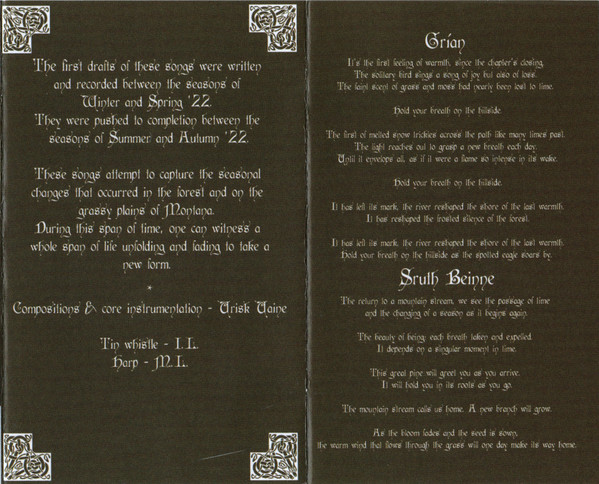 The first drafts of these songs were written
and recorded between the seasons of
Winter and Spring '22.
They were pushed to completion between the
seasons of Summer and Autumn '22.
These songs attempt to capture the seasonal
changes that occurred in the forest and on the
grassy plains of Montana.
During this span of time, one can witness a
whole span of life unfolding and fading to take a
new form.
*
Compositions & core instrumentation - Urisk Uaine
Tin whistle - I.L.
Harp - M.L.
Grian
It's the first feeling of warmth, since the chapter's closing.
The solitary bird sings a song of joy but also of loss.
The faint scent of grass and moss had nearly been lost to time.
Hold your breath on the hillside.
The first of melted snow trickles across the path like many times past.
The light reaches out to grasp a new breath each day.
Until it envelops all, as if it were a flame so intense in its wake.
Hold your breath on the hillside.
It has left its mark, the river reshaped the shore of the last warmth.
It has reshaped the frosted silence of the forest.
It has left its mark, the river reshaped the shore of the last warmth.
Hold your breath on the hillside as the spotted eagle soars by.
Sruth Beinne
The return to a mountain stream, we see the passage of time
and the changing of a season as it begins again.
The beauty of being: each breath taken and expelled.
It depends on a singular moment in time.
This great pine will greet you as you arrive.
It will hold you in its roots as you go.
The mountain stream calls us home. A new branch will grow.
As the bloom fades and the seed is sown,
the warm wind that flows through the grass will one day make its way home.